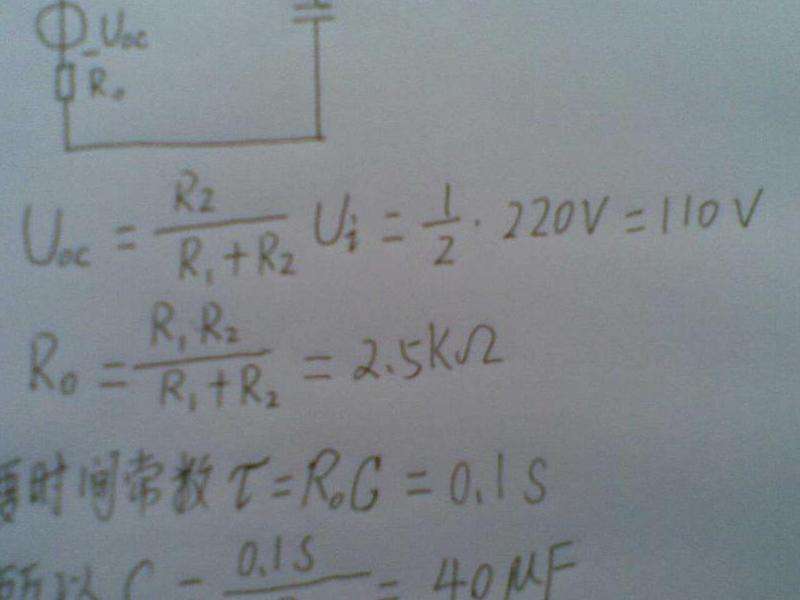 - Uoc
R₀
Uoc = R₂/(R₁+R₂) Ui = 1/2 · 220V = 110V
R₀ = R₁R₂/(R₁+R₂) = 2.5KΩ
时间常数 τ = R₀C = 0.1S
所以 C = 0.1S/ = 40μF